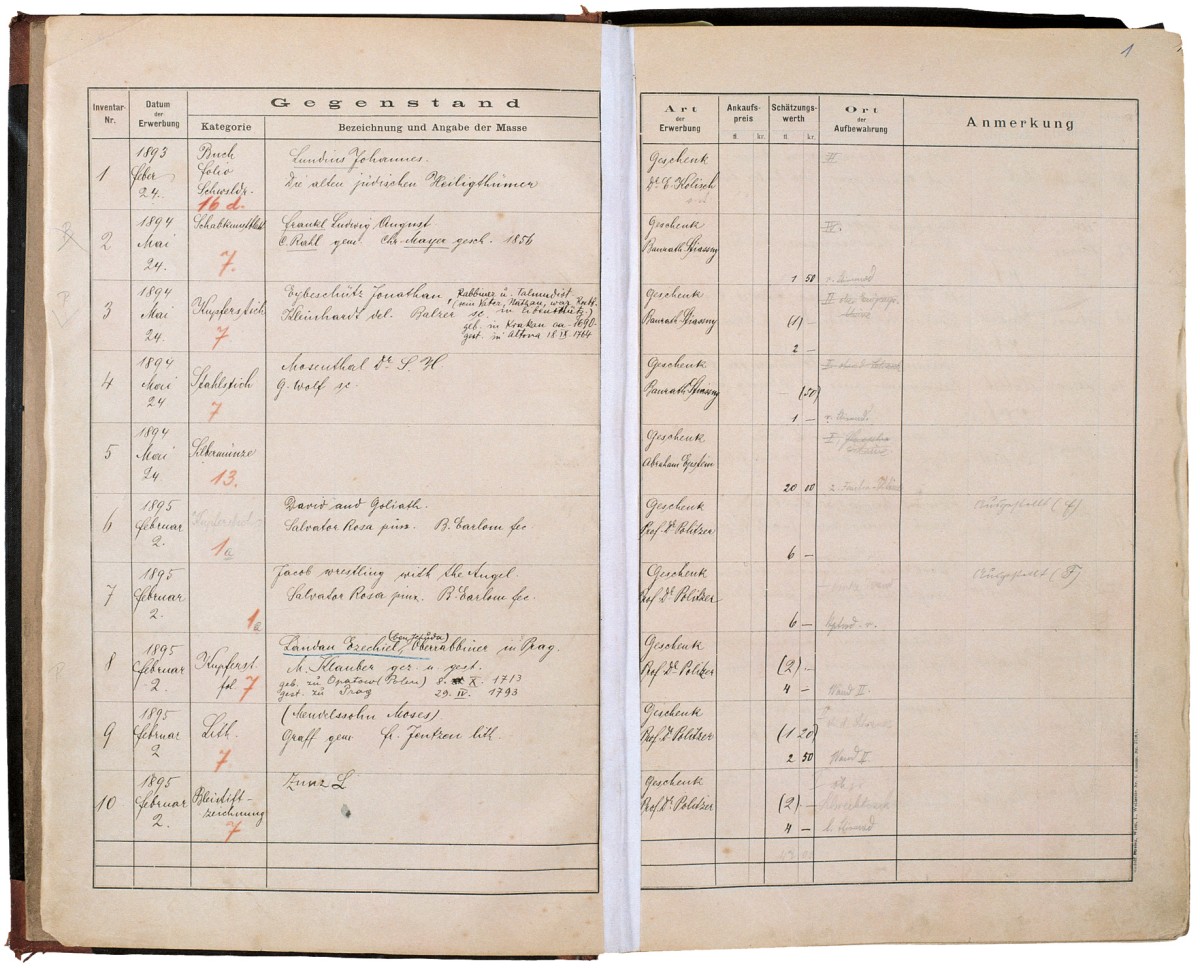 1
Inventar-Nr.
Datum der Erwerbung
Gegenstand
Kategorie
Bezeichnung und Angabe der Masse
Art der Erwerbung
Ankaufspreis
fl. kr.
Schätzungswerth
fl. kr.
Ort der Aufbewahrung
Anmerkung
1
1893
Feber
24.
Buch
folio
Schwsldr.
16 d.
Lundius Johannes.
Die alten jüdischen Heiligthümer
Geschenk
Dr. E. Kolisch
2
1894
Mai
24.
Schabkunstblatt
7.
Frankl Ludwig August
C. Rahl gem. Chr. Mayer gesch. 1856
Geschenk
Baurath Stiassny
IV.
1 50
3
1894
Mai
24.
Kupferstich
7
Eybeschütz Jonathan, Rabbiner u. Talmudist
(sein Vater, Nathan, war Rabb.
Kleinhardt del. Balzer sc. in Eibenschütz.)
geb. in Krakau ca. 1690
gest. in Altona 18 IX. 1764
Geschenk
Baurath Stiassny
(1) –
2 –
4
1894
Mai
24
Stahlstich
7
Mosenthal Dr. S. H
G. Wolf sc.
Geschenk
Baurath Stiassny
– (50)
1 –
5
1894
Mai
24.
Silbermünze
13.
Geschenk
Abraham Epstein
20 00
6
1895
Februar
2.
1a
David and Goliath.
Salvator Rosa pinx. B. Earlom fec.
Geschenk
Prof. Dr. Politzer
6 –
Ausgestellt (F)
7
1895
Februar
2.
1a
Jacob wrestling with the Angel.
Salvator Rosa pinx. B. Earlom fec.
Geschenk
Prof. Dr. Politzer
6 –
Ausgestellt (F)
8
1895
Februar
2.
Kupferst.
fol 7
(ben Jehuda)
Landau Ezechiel, Oberrabbiner in Prag.
M. Klauber gez. u. gest.
geb. zu Opatow (Polen) 8. X. 1713
gest. zu Prag 29. IV. 1793
Geschenk
Prof. Dr. Politzer
(2) –
4 –
Wand II.
9
1895
Februar
2
Lith.
7
(Mendelssohn Moses)
Graff gem. Fr. Jentzen lith.
Geschenk
Prof. Dr. Politzer
(1 20)
2 50
Wand II
10
1895
Februar
2.
Bleistift-
zeichnung
7
Zunz L
Geschenk
Prof. Dr. Politzer
(2) –
4 –